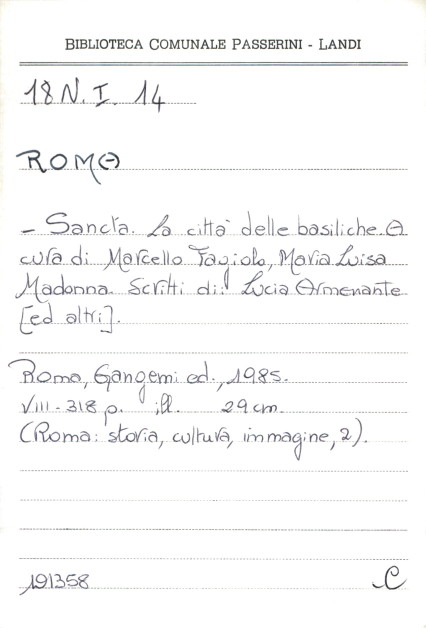 BIBLIOTECA COMUNALE PASSERINI - LANDI
18 N. I. 14
ROMA
- Sancta. La città delle basiliche. A
cura di Marcello Fagiolo, Maria Luisa
Madonna. Scritti di: Lucia Armenante
[ed altri].
Roma, Gangemi ed., 1985.
VIII - 318 p. ill. 29 cm.
(Roma: storia, cultura, immagine, 2).
191358 C